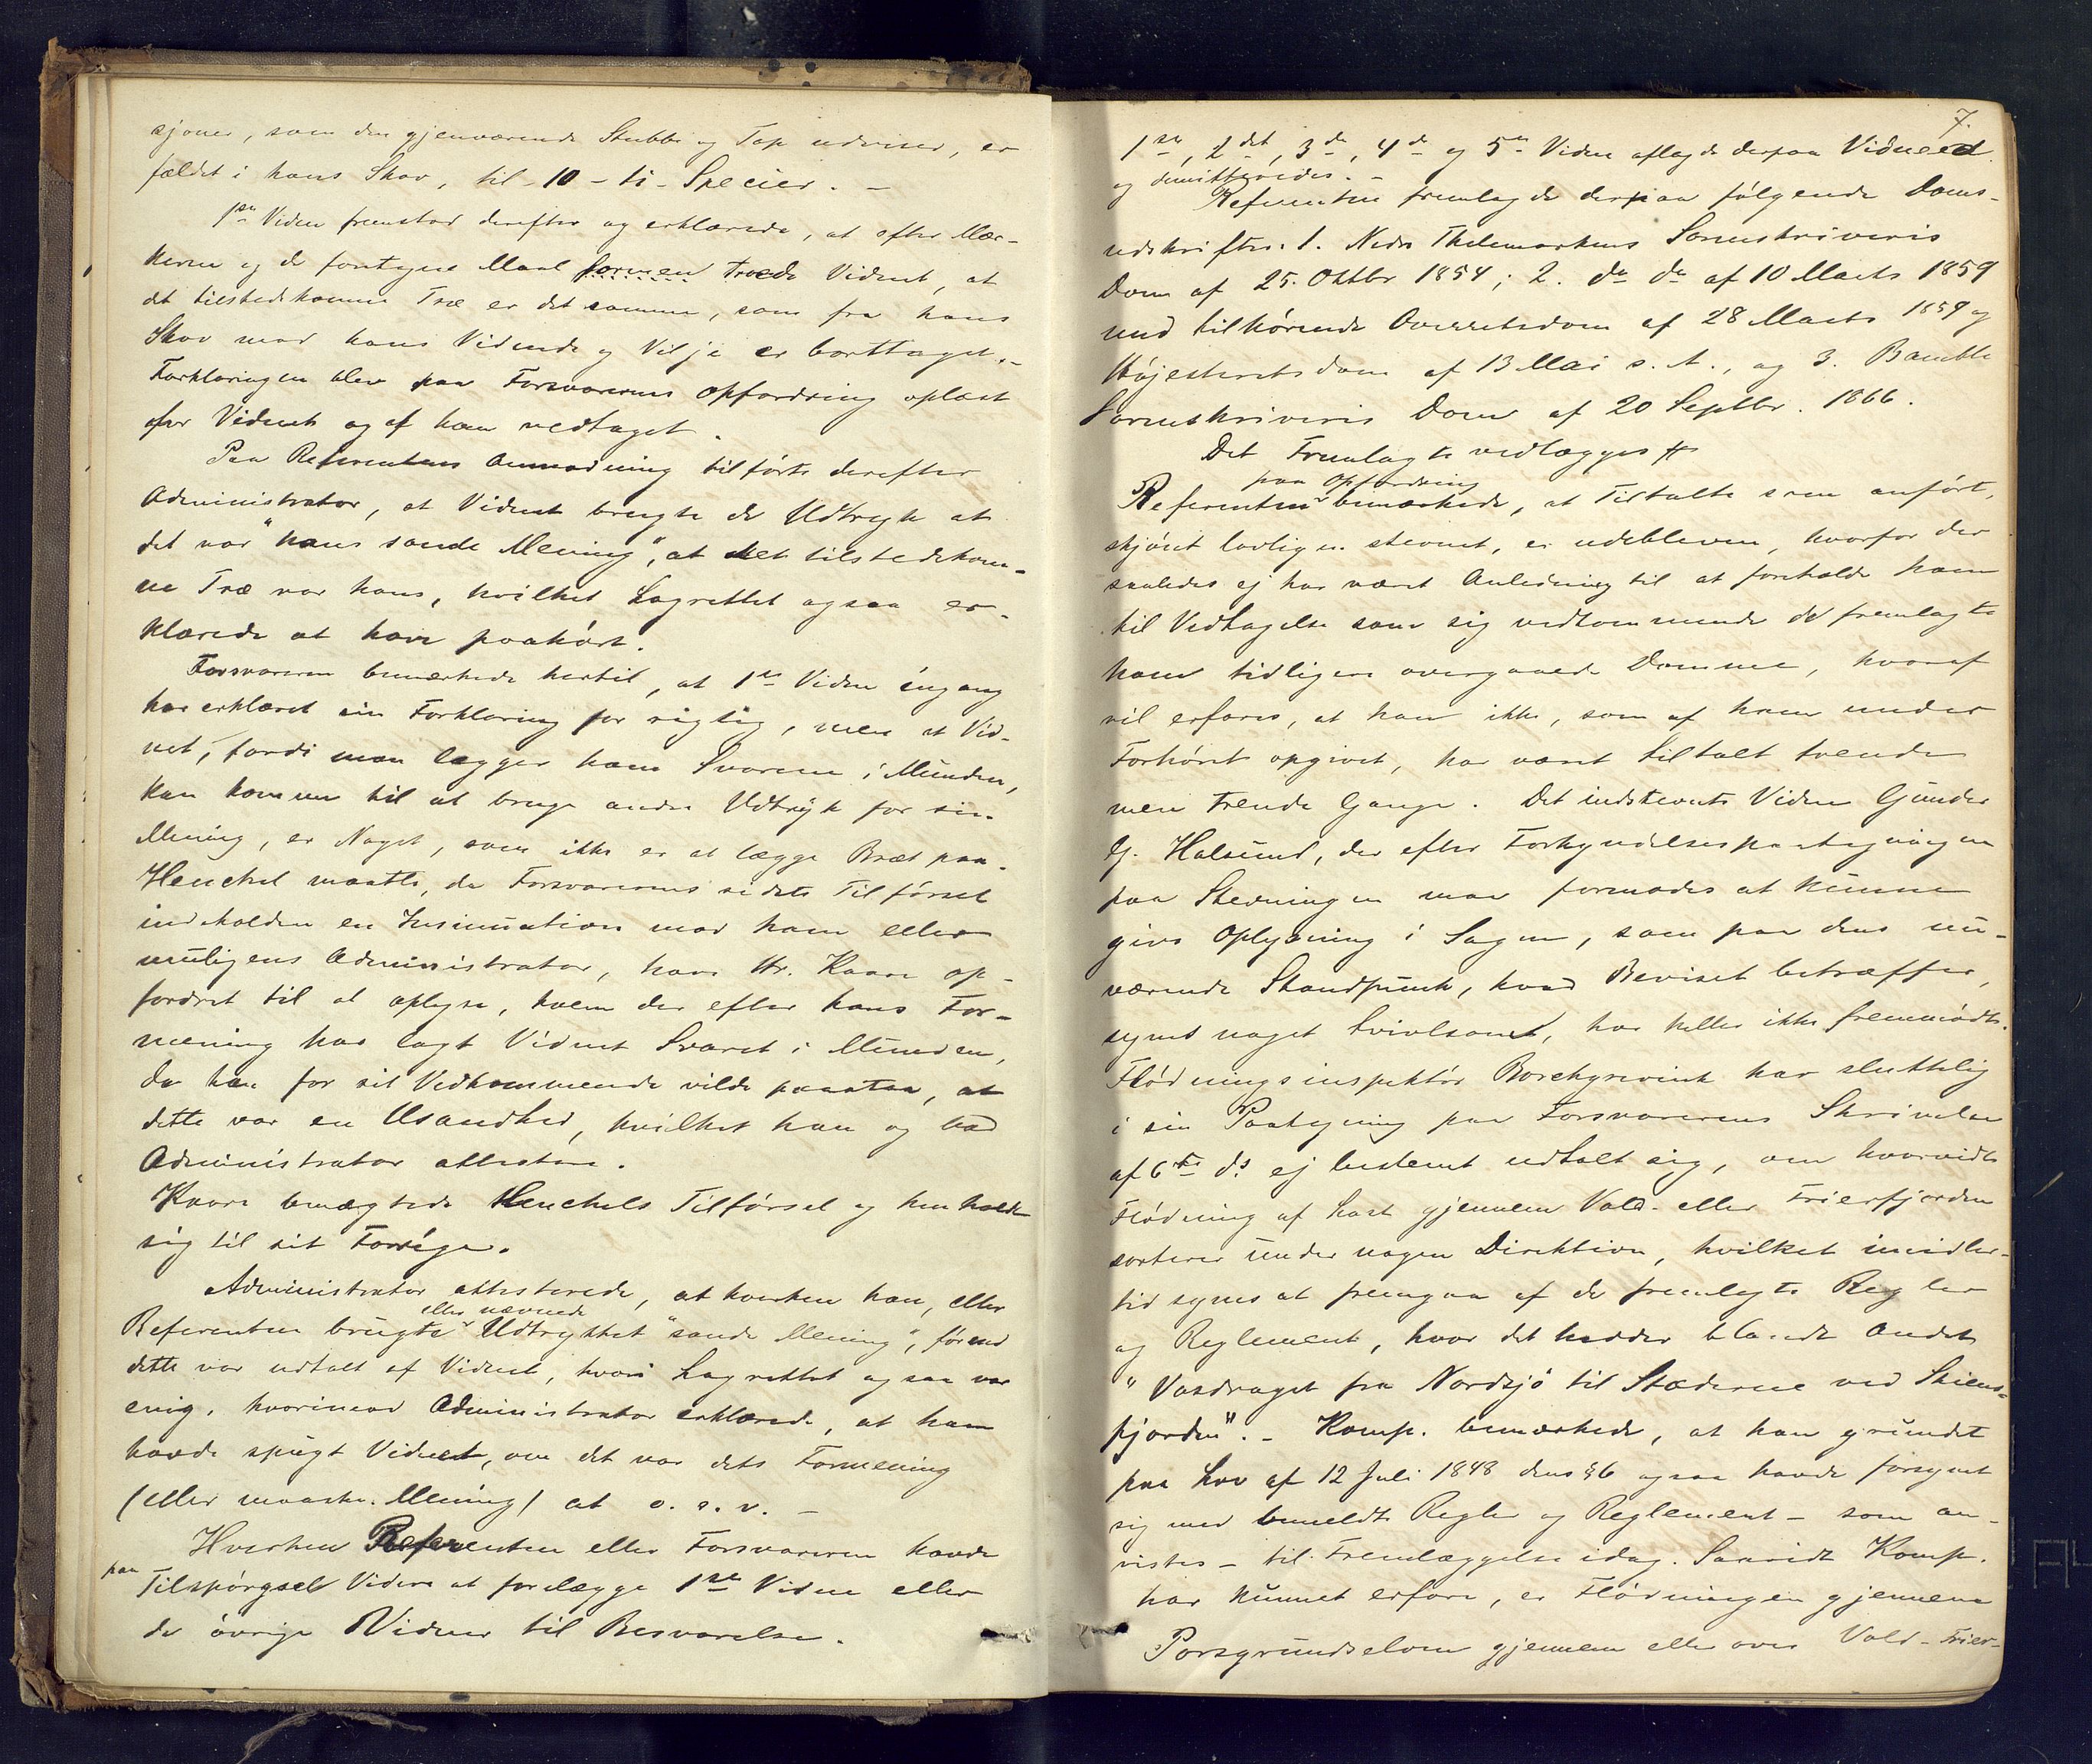 sjoner, som den gjenværende Stubbe og Top udviser, er
fældet i hans Skov, til 10 - ti - Specier. -
1ste Vidne fremstod derefter og erklærede, at efter Mær-
kerne og de foretagne Maal formen troede Vidnet, at
det tilstedekomne Træ er det samme, som fra hans
Skov mod hans Vidende og Vilje er borttaget. -
Forklaringen blev paa Forsvarerens Opfordring oplæst
for Vidnet og af ham vedtaget.
Paa Referentens Anmodning tilførte derefter
Administrator, at Vidnet brugte de Udtryk at
det var "hans sande Mening", at det tilstedekom-
ne Træ var hans, hvilket Lagrettet ogsaa er-
klærede at have paahørt.
Forsvareren bemærkede hertil, at 1ste Vidne engang
har erklæret sin Forklaring for rigtig, men at Vid-
net, fordi man lægger ham Svarene i Munden,
kan komme til at bruge andre Udtryk for sin
Mening, er Noget, som ikke er at lægge Bræt paa.
Henchel maatte, da Forsvarerens sidste Tilførsel
indeholder en Insinuation mod ham eller
muligens Administrator, have Hr. Kaare op-
fordret til at oplyse, hvem der efter hans For-
mening har lagt Vidnet Svaret i Munden,
da han for sit Vedkommende vilde paastaa, at
dette var en Usandhed, hvilket han og bad
Administrator attestere.
Kaare benægtede Henchels Tilførsel og henholdt
sig til sit Forrige.
Administrator attesterede, at hverken han, eller
eller nævnede
Referenten brugte Udtrykket "sande Mening", førend
dette var udtalt af Vidnet, hvori Lagrettet ogsaa var
enig, hvorimod Administrator erklærede, at han
havde spugt Vidnet, om det var dets Formening
(eller maaske Mening) at o. s. v. -
Hverken Referenten eller Forsvareren havde
paa
Tilspørgsel Videre at forelægge 1ste Vidne eller
de øvrige Vidner til Besvarelse.
7.
1ste, 2det, 3de, 4de og 5te Vidne aflagde derpaa Vidneed
og demitteredes. -
Referenten fremlagde derpaa følgende Doms-
udskrifter: 1. Nedre Thelemarkens Sorenskriveris
Dom af 25. Oktbr 1854; 2. do do af 10 Marts 1859
med tilhørende Overretsdom af 28 Marts 1859 og
Højesteretsdom af 13 Mai s. A., og 3. Bamble
Sorenskriveris Dom af 20 Septbr. 1866.
Det Fremlagte vedlægges #
paa Opfordring
Referenten bemærkede, at Tiltalte som anført,
skjønt lovligen stevnet, er udebleven, hvorfor der
saaledes ej har været Anledning til at foreholde ham
til Vedtagelse som sig vedkommende de fremlagte
ham tidligere overgaaede Domme, hvoraf
vil erfares, at han ikke, som af ham under
Forhøret opgivet, har været tiltalt tvende
men trende Gange. Det indstevnte Vidne Gunder
G. Halsund, der efter Forkyndelsespaategningen
paa Stevningen maa formodes at kunne
give Oplysning i Sagen, som paa dens nu-
værende Standpunkt, hvad Beviset betræffer,
synes noget tvivlsomt, har heller ikke fremmødt.
Flødningsinspektør Borchgrevink har sluttelig
i sin Paategning paa Forsvarerens Skrivelse
af 6te ds. ej bestemt udtalt sig, om hvorvidt
Flødning af Last gjennem Vold- eller Frierfjorden
sorterer under nogen Direktion, hvilket imidler-
tid synes at fremgaa af de fremlagte Regler
og Reglement, hvor det hedder blandt Andet
"Vasdraget fra Nordsjø til Stæderne ved Skiens-
fjorden". - Komp. bemærkede, at han grundet
paa Lov af 12 Juli 1848 dens § 6 ogsaa havde forsynet
sig med bemeldte Regler og Reglement - som an-
vistes - til Fremlæggelse idag. Saavidt Komp.
har kunnet erfare, er Flødningen gjennem
Porsgrundselven gjennem eller over Vold- Frier-